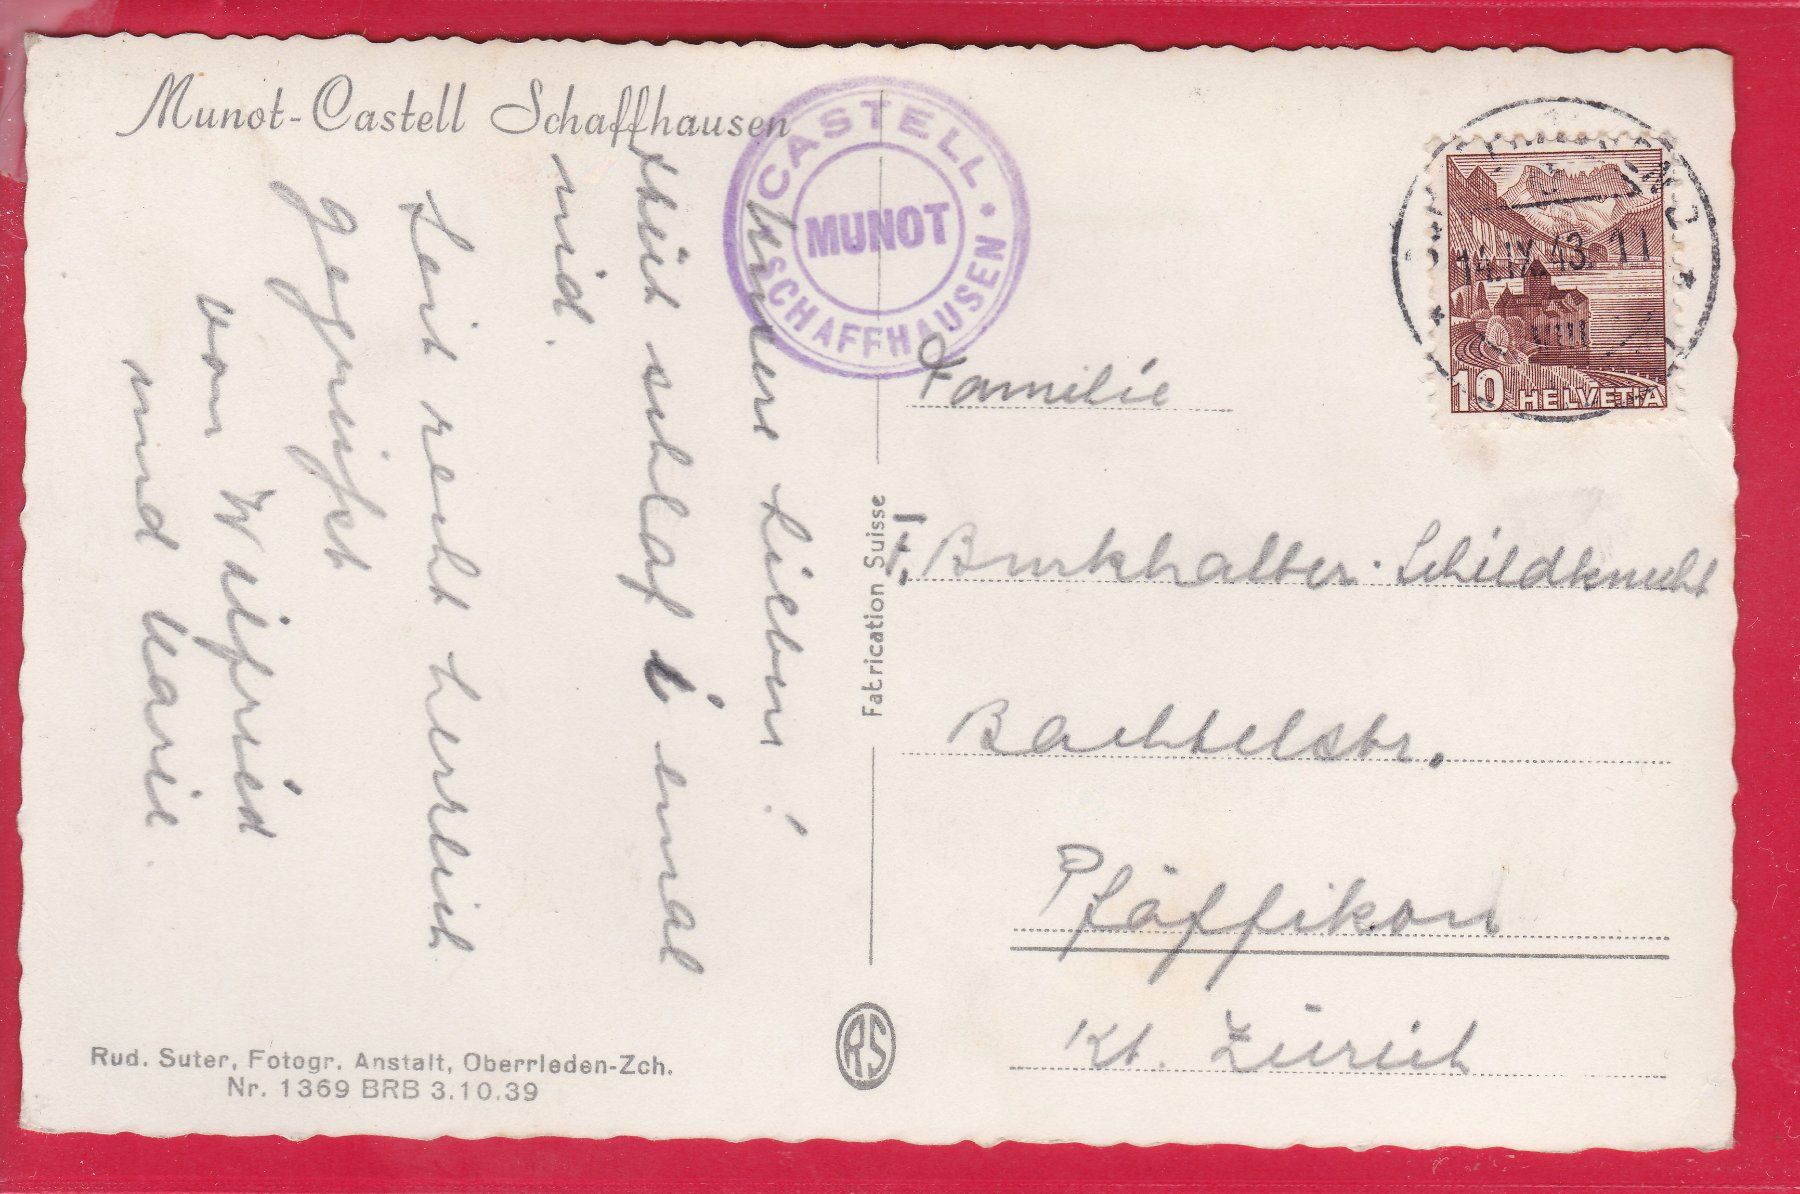 Munot-Castell Schaffhausen
CASTELL
MUNOT
SCHAFFHAUSEN
14.IX.43.11
10 HELVETIA
Lieben!
schlaf i
nid.
Seit recht herzlich
gegrüsst
von Wilfried
und Marie.
Fatrication Suisse
Familie
F. Burkhalter-Schildknecht
Bachtelstr.
Pfäffikon
Kt. Zürich
RS
Rud. Suter, Fotogr. Anstalt, Oberrieden-Zch.
Nr. 1369 BRB 3.10.39